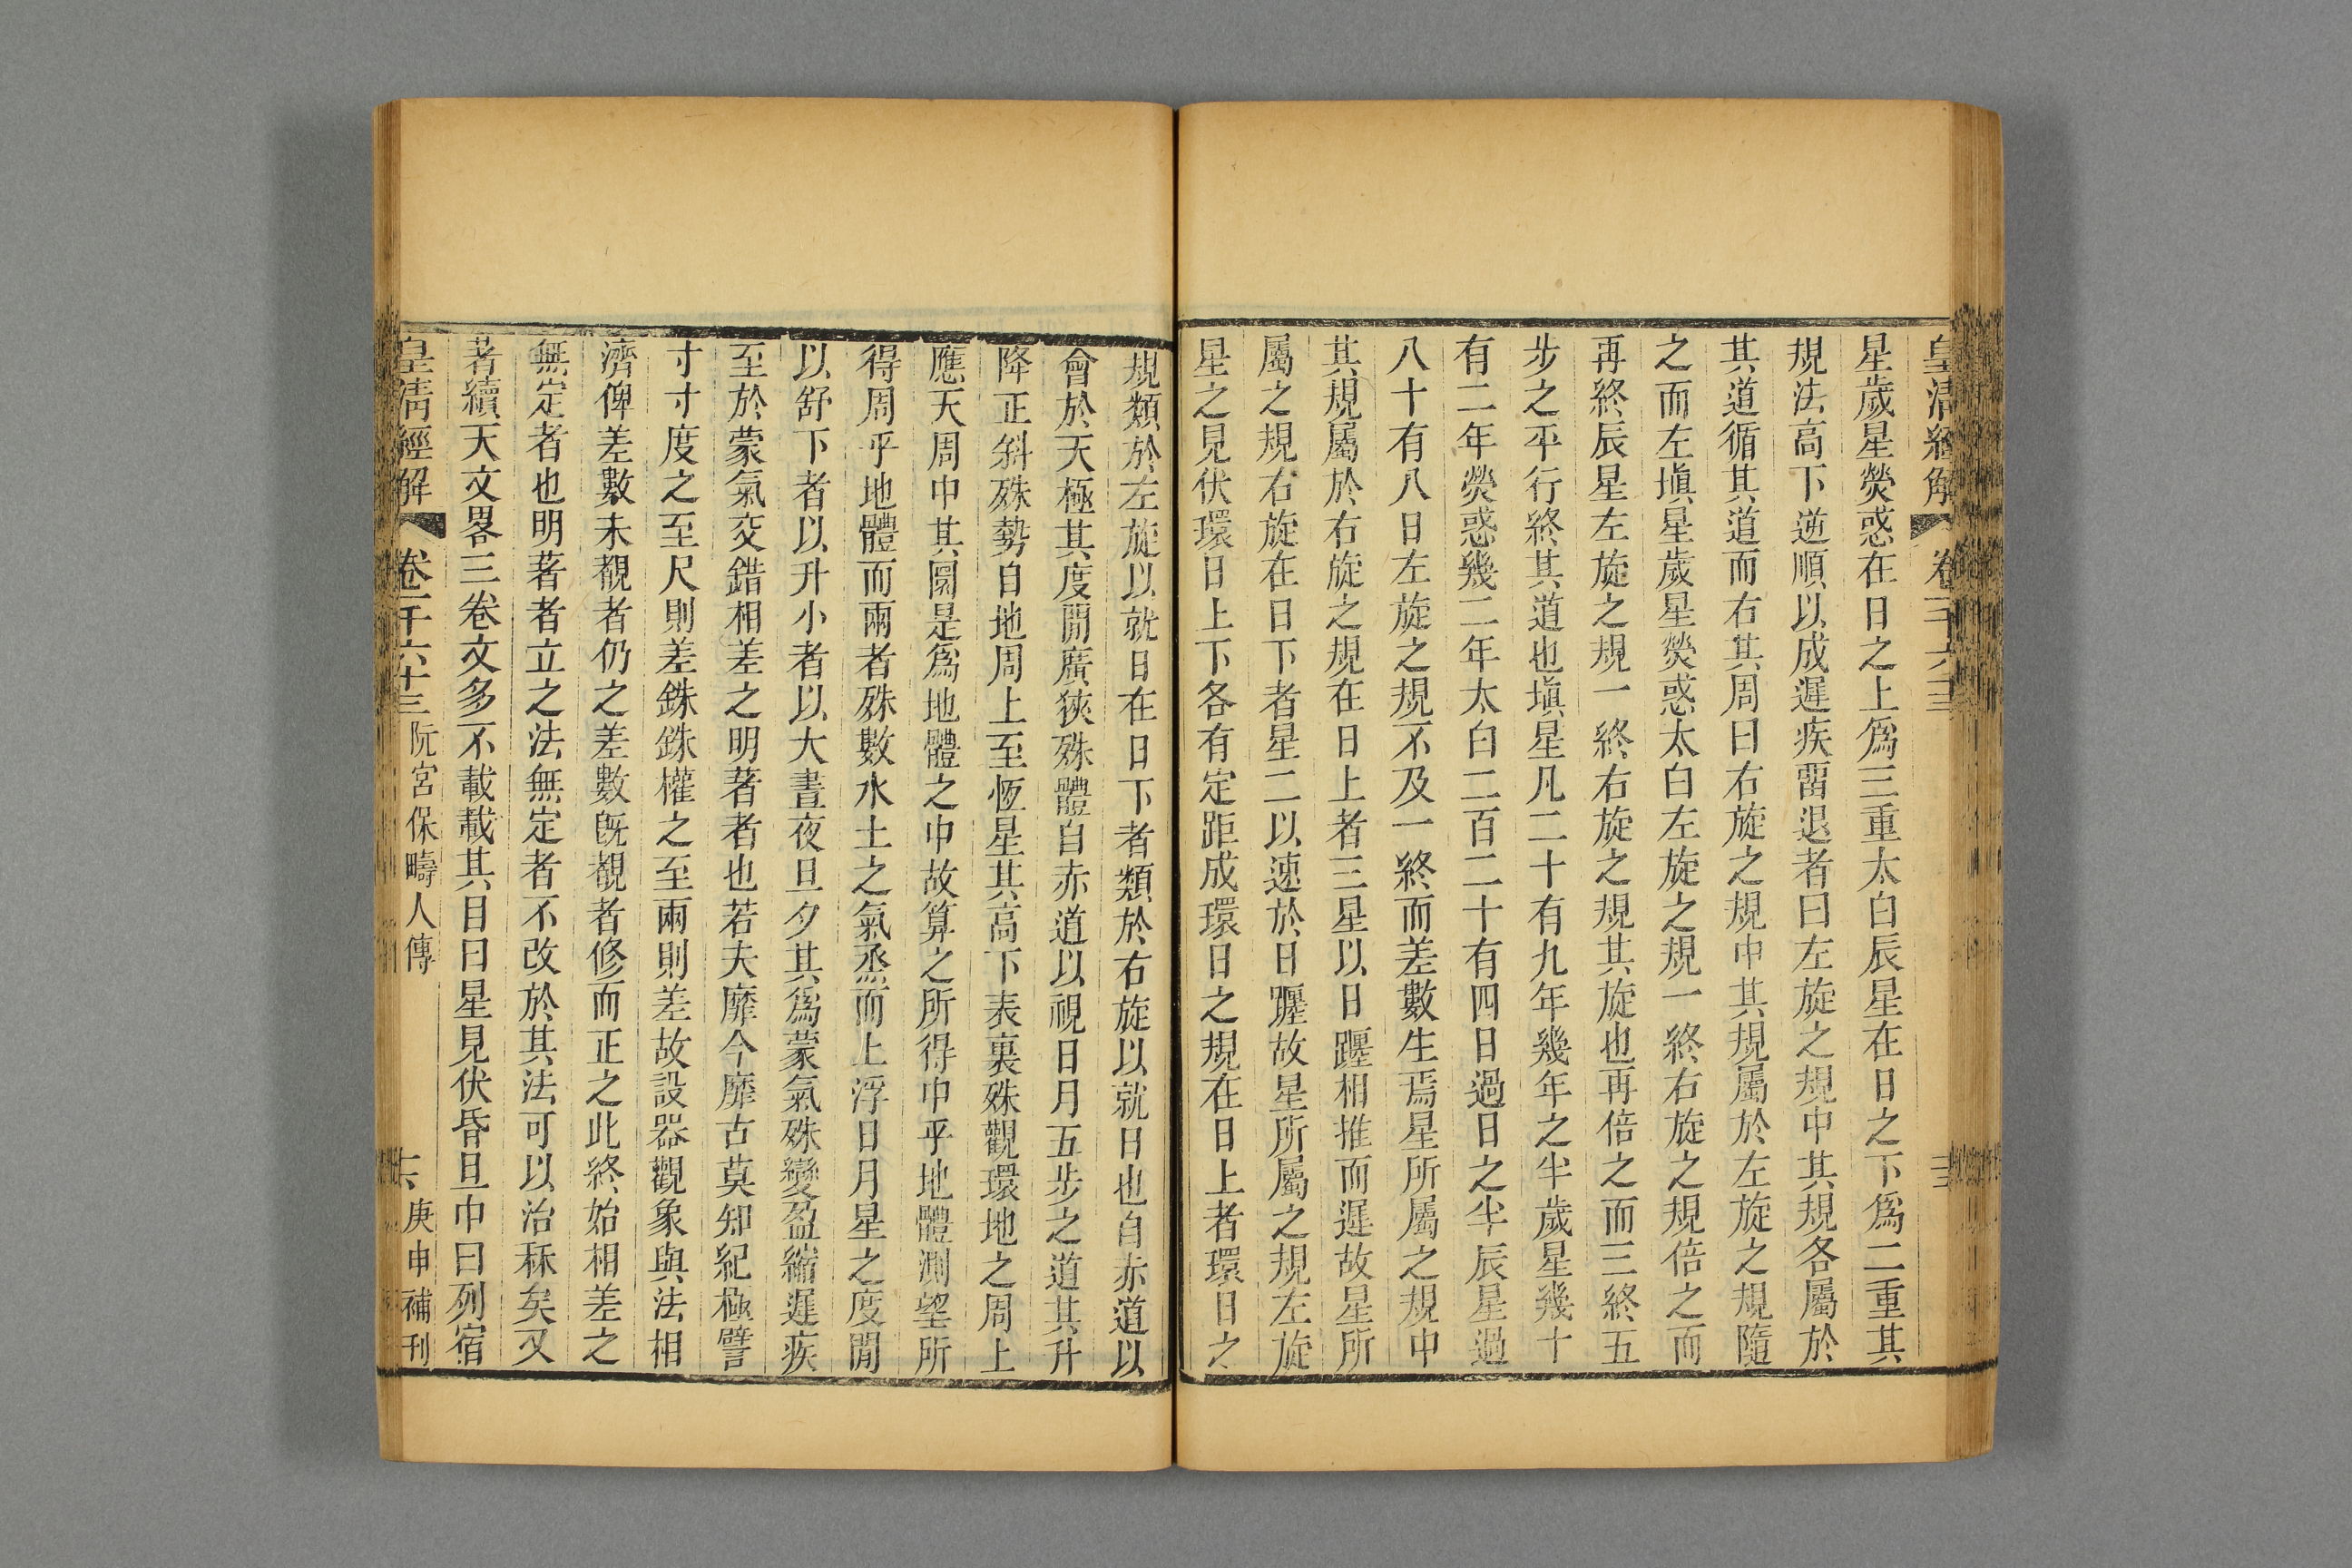 皇清經解 卷一千六十三
星歲星熒惑在日之上爲三重太白辰星在日之下爲二重其
規法高下逆順以成遲疾畱退者曰左旋之規中其規各屬於
其道循其道而右其周曰右旋之規中其規屬於左旋之規隨
之而左塡星歲星熒惑太白左旋之規一終右旋之規倍之而
再終辰星左旋之規一終右旋之規其旋也再倍之而三終五
步之平行終其道也塡星凡二十有九年幾年之半歲星幾十
有二年熒惑幾二年太白二百二十有四日過日之半辰星過
八十有八日左旋之規不及一終而差數生焉星所屬之規中
其規屬於右旋之規在日上者三星以日躔相推而遲故星所
屬之規右旋在日下者星二以速於日躔故星所屬之規左旋
星之見伏環日上下各有定距成環日之規在日上者環日之
規類於左旋以就日在日下者類於右旋以就日也自赤道以
會於天極其度閒廣狹殊體自赤道以視日月五步之道其升
降正斜殊勢自地周上至恆星其高下表裏殊觀環地之周上
應天周中其圜是爲地體之中故算之所得中乎地體測望所
得周乎地體而兩者殊數水土之氣烝而上浮日月星之度閒
以舒下者以升小者以大晝夜旦夕其爲蒙氣殊變盈縮遲疾
至於蒙氣交錯相差之明著者也若夫靡今靡古莫知紀極譬
寸寸度之至尺則差銖銖權之至兩則差故設器觀象與法相
濟俾差數未覩者仍之差數旣覩者修而正之此終始相差之
無定者也明著者立之法無定者不改於其法可以治秝矣又
著續天文畧三卷文多不載載其目曰星見伏昏旦中曰列宿
皇清經解 卷一千六十三 阮宮保疇人傳 六 庚申補刊